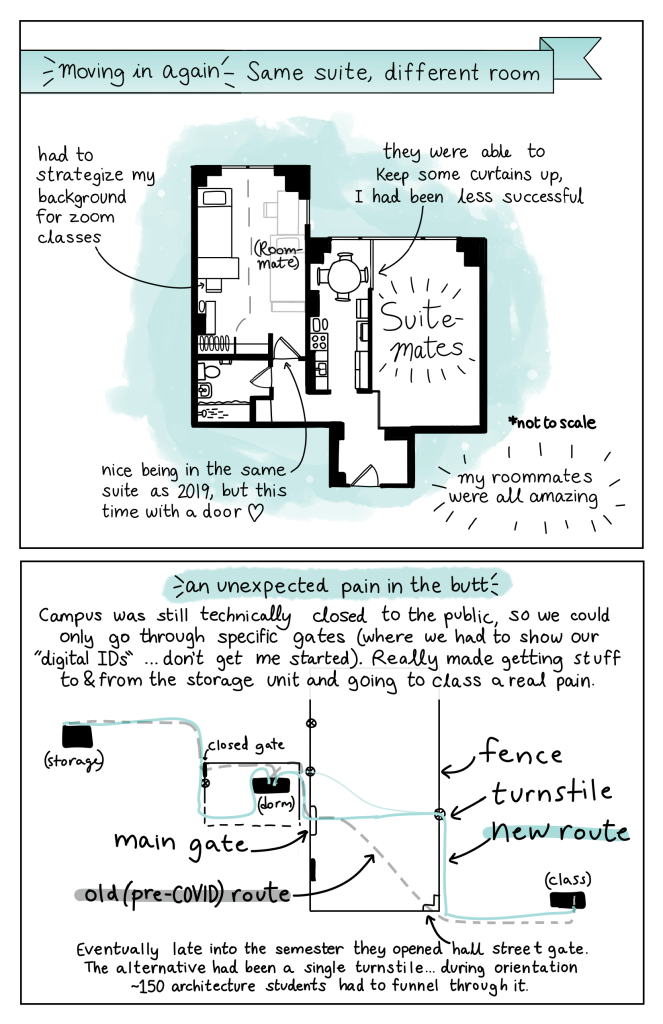 Moving in again Same suite, different room
had to
strategize my
background
for zoom
classes
they were able to
Keep some curtains up,
I had been less successful
(Room-
mate)
Suite-
mates
*not to scale
nice being in the same
suite as 2019, but this
time with a door ♡
my roommates
were all amazing
an unexpected pain in the butt
Campus was still technically closed to the public, so we could
only go through specific gates (where we had to show our
"digital IDs" ... don't get me started). Really made getting stuff
to & from the storage unit and going to class a real pain.
closed gate
(storage)
(dorm)
fence
turnstile
new route
main gate
(class)
old (pre-COVID) route
Eventually late into the semester they opened hall street gate.
The alternative had been a single turnstile... during orientation
~150 architecture students had to funnel through it.